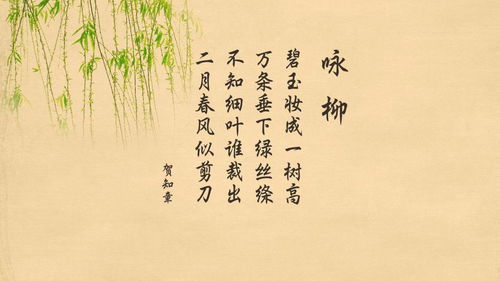 咏柳
碧玉妆成一树高
万条垂下绿丝绦
不知细叶谁裁出
二月春风似剪刀
贺知章